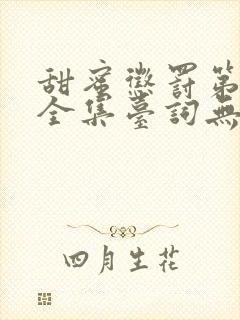 甜蜜懲罰第
全集臺詞無
四月生花